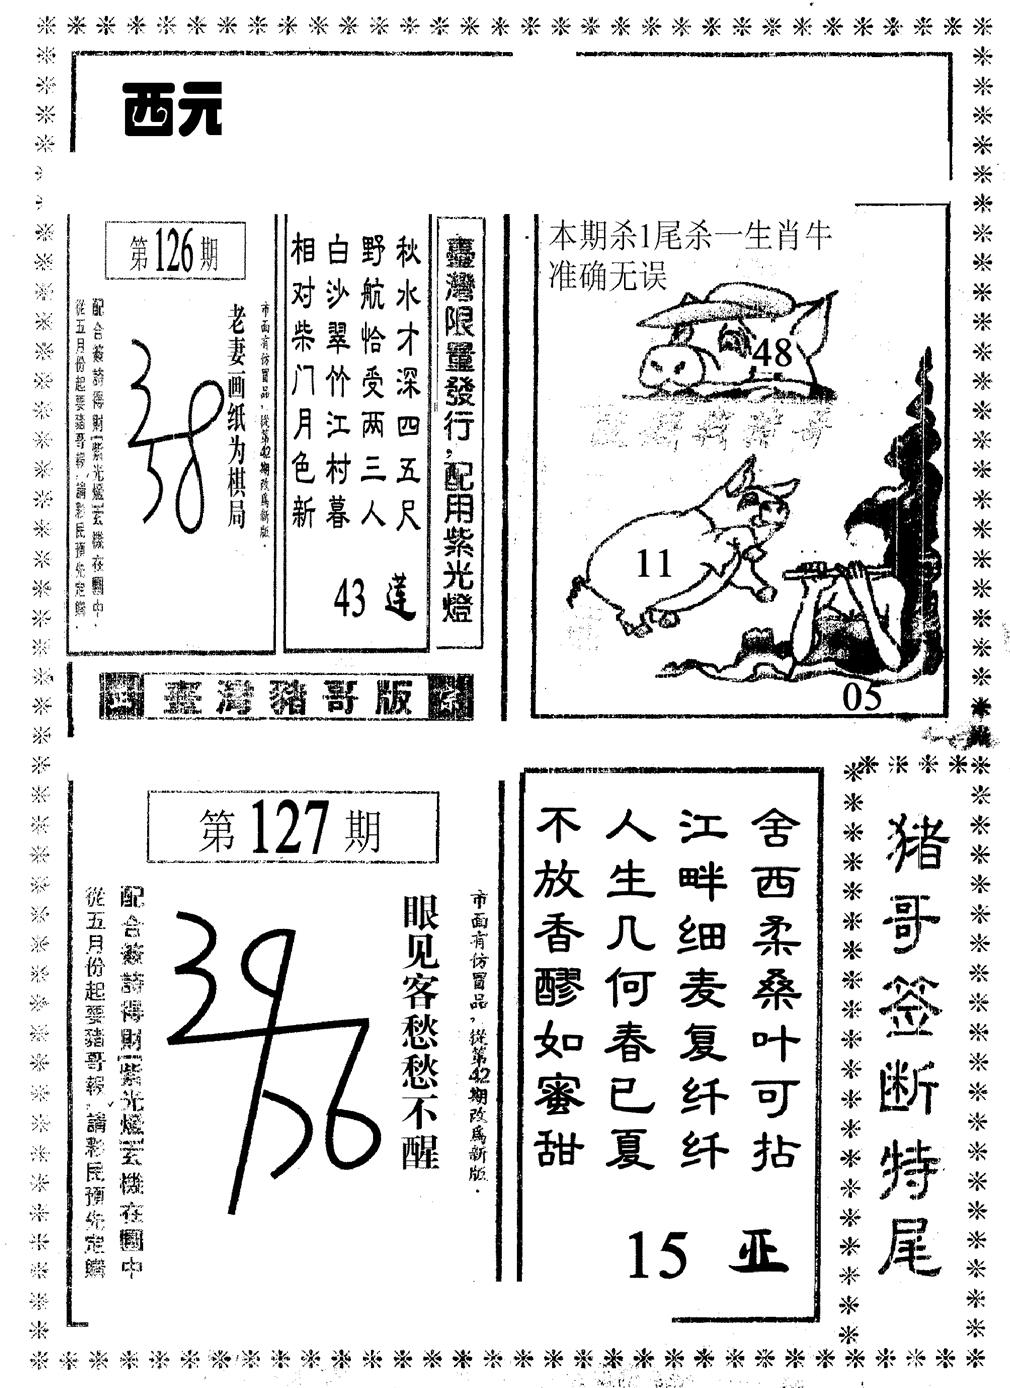 西元
第126期
老妻画纸为棋局
市面有仿冒品，從第42期改爲新版．
配合簽詩得財 紫光燈 玄機在圖中．
從五月份起要豬哥報，請彩民預先定購．
秋水才深四五尺
野航恰受两三人
白沙翠竹江村暮
相对柴门月色新
43 莲
臺灣限量發行，配用紫光燈
臺灣豬哥版
本期杀1尾杀一生肖牛
准确无误
48
11
05
第127期
眼见客愁愁不醒
市面有仿冒品，從第42期改爲新版．
配合簽詩得財 紫光燈 玄機在圖中
從五月份起要豬哥報，請彩民預先定購
舍西柔桑叶可拈
江畔细麦复纤纤
人生几何春已夏
不放香醪如蜜甜
15 亚
猪哥签断特尾